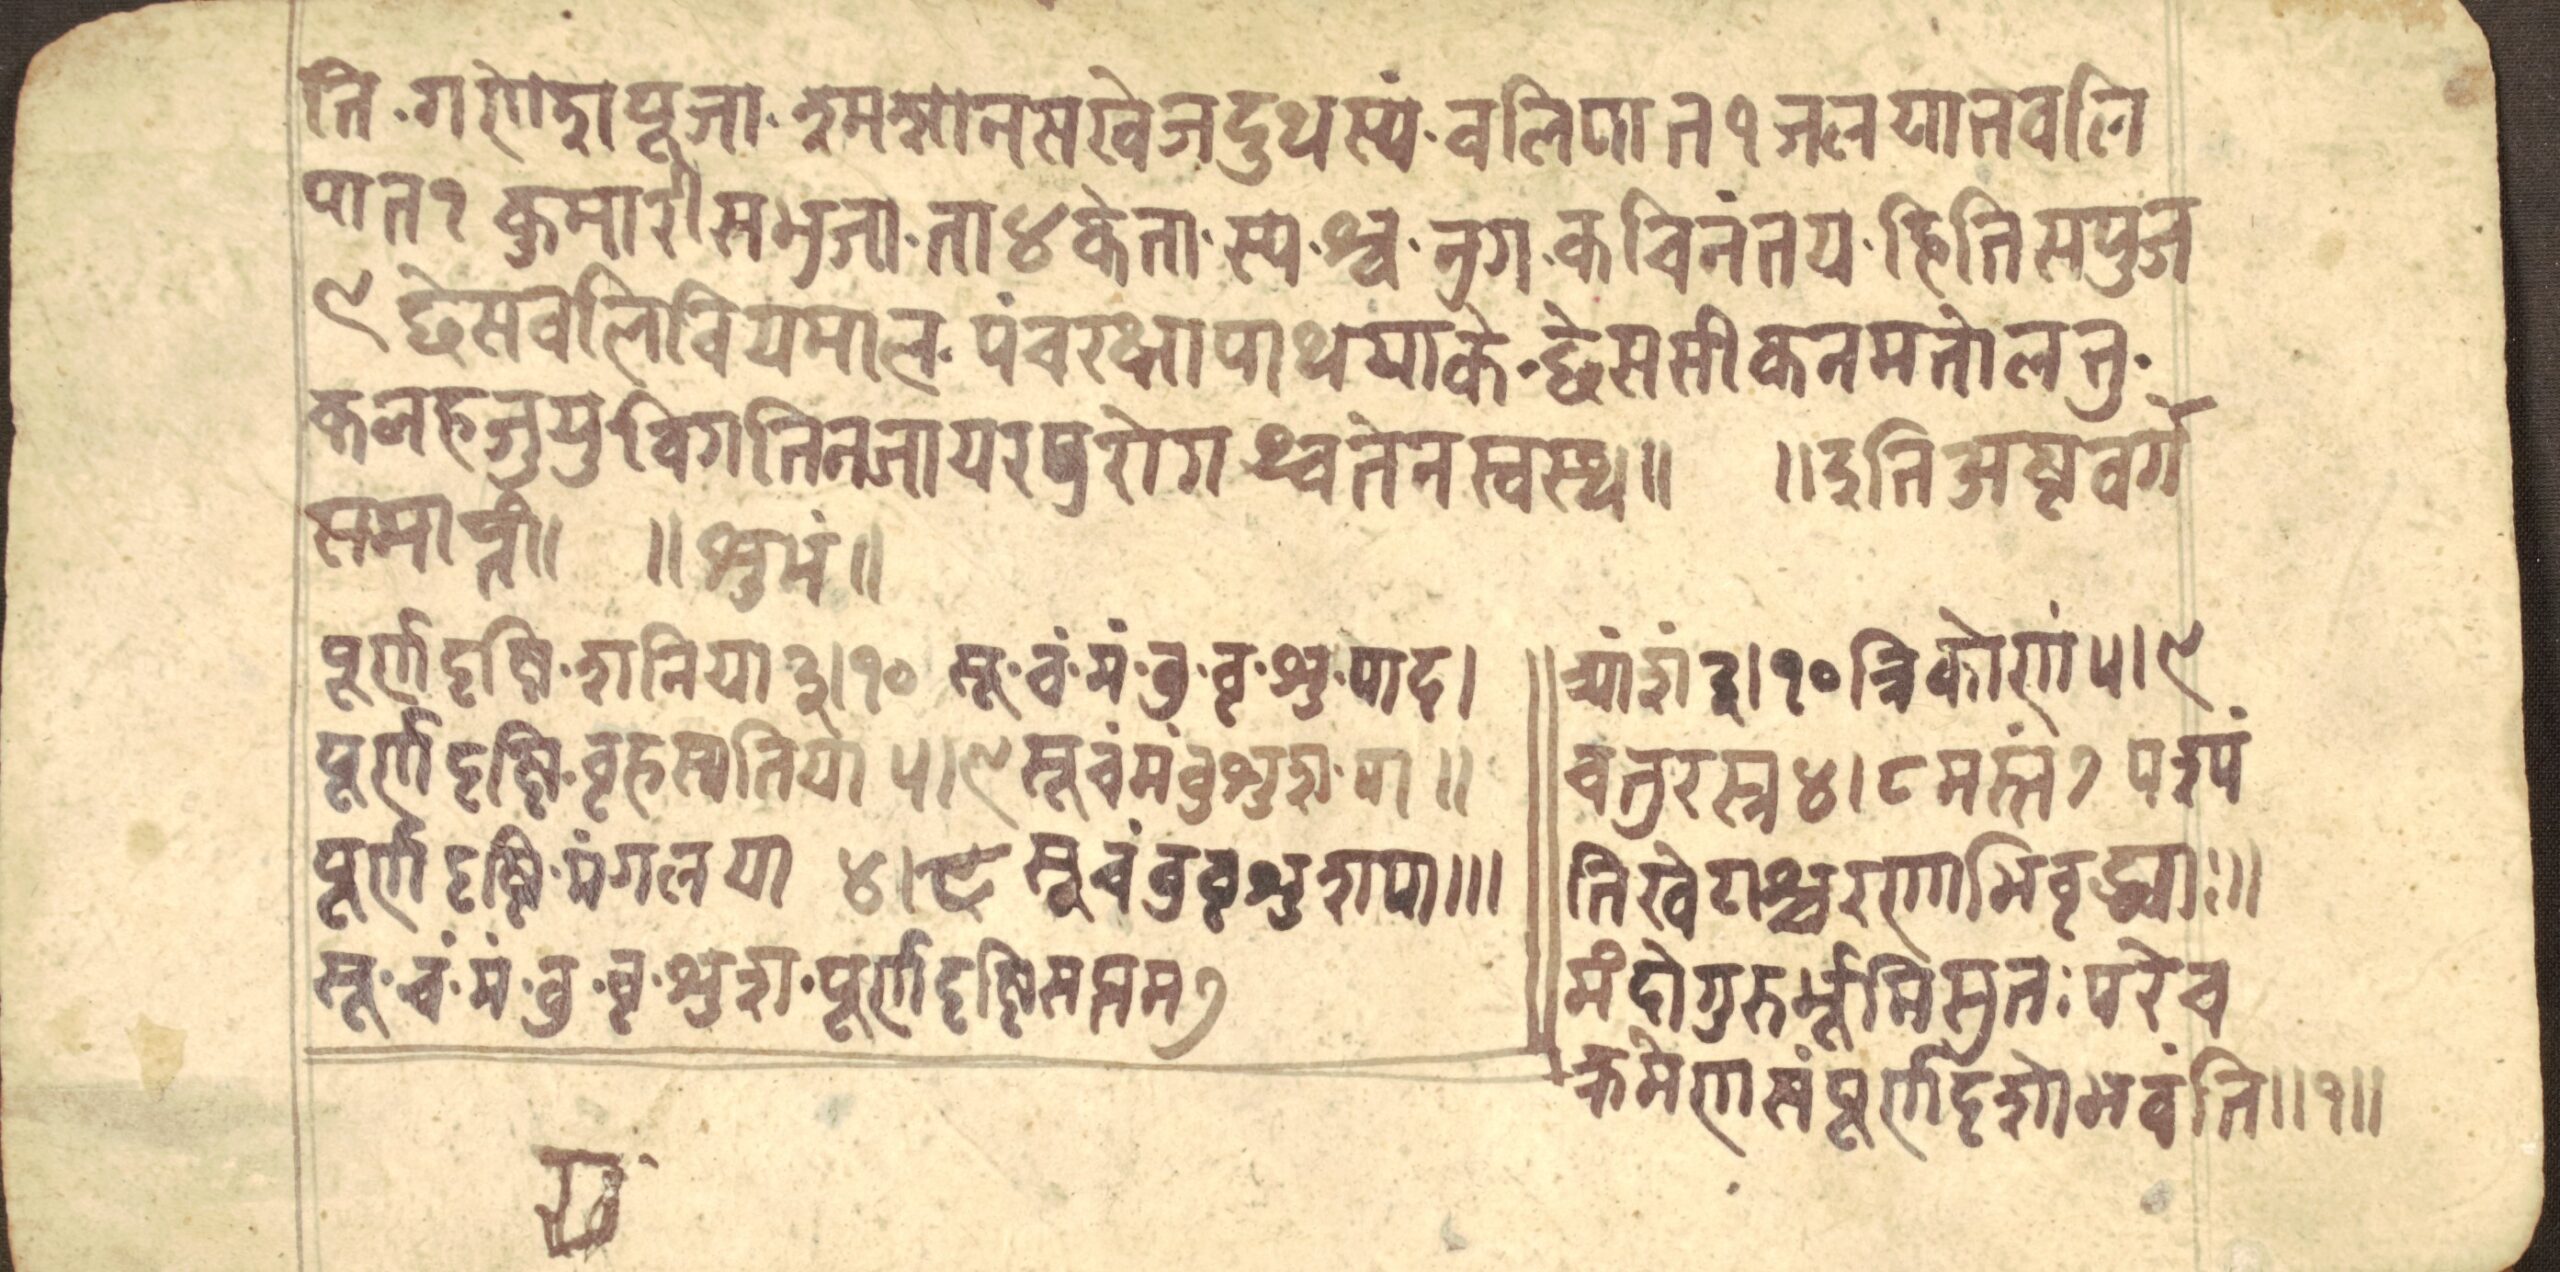 ति · गणेश पूजा · श्मशानस खेजदुथस्यं · वलिपात १ जलयातवलि
पात १ कुमारीसभुजा · ता ४ केता · स्य · श्व · नुग · कचिनंतय · ह्नितिसपुज
९ छेसवलिवियमाल · पंचरक्षापाथयाके · छेससीकनमतोलनु ·
कलहजुयु विगतिनजायरपुरोग श्वतेनस्वस्थ ॥ ॥ इति अष्टवर्ग
समाप्त ॥ ॥ शुभं ॥
पूर्णदृष्टि · शनिया ३।१० सू · चं · मं · बु · बृ · शु · पाद।
पूर्णदृष्टि · वृहस्पतिया ५।९ सू चं मं बु शु श · पा ॥
पूर्णदृष्टि · मंगलया ४।८ सू चं बु बृ शु श पा ॥।
सू · चं · मं · बु · बृ · शु श · पूर्णदृष्टि सप्तम ७
त्र्यांशं ३।१० त्रिकोणं ५।९
चतुरस्र ४।८ मस्तं ७ पश्यं
ति खेटाश्चरणाभिवृद्ध्या ः ॥
मंदो गुरुर्भूमिसुतः परे च
क्रमेण संपूर्णदृशो भवंति ॥ १ ॥